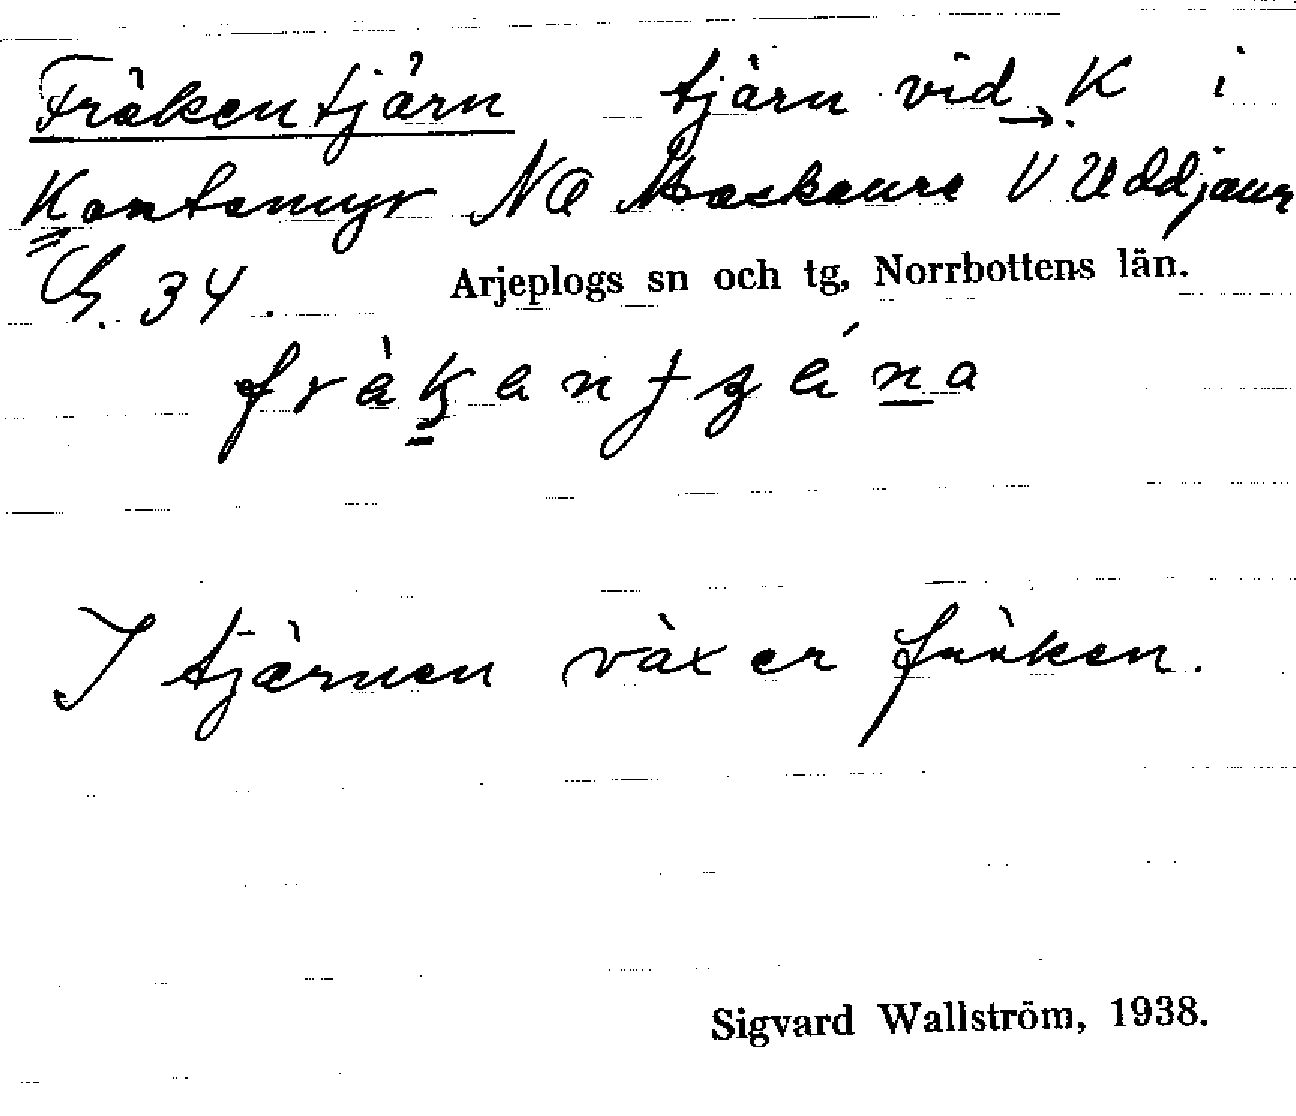 Fräkentjärn tjärn vid K i
Kantamyr NO Maskaure V Uddjaur
G. 34. Arjeplogs sn och tg, Norrbottens län.
I tjärnen växer fräken.
Sigvard Wallström, 1938.